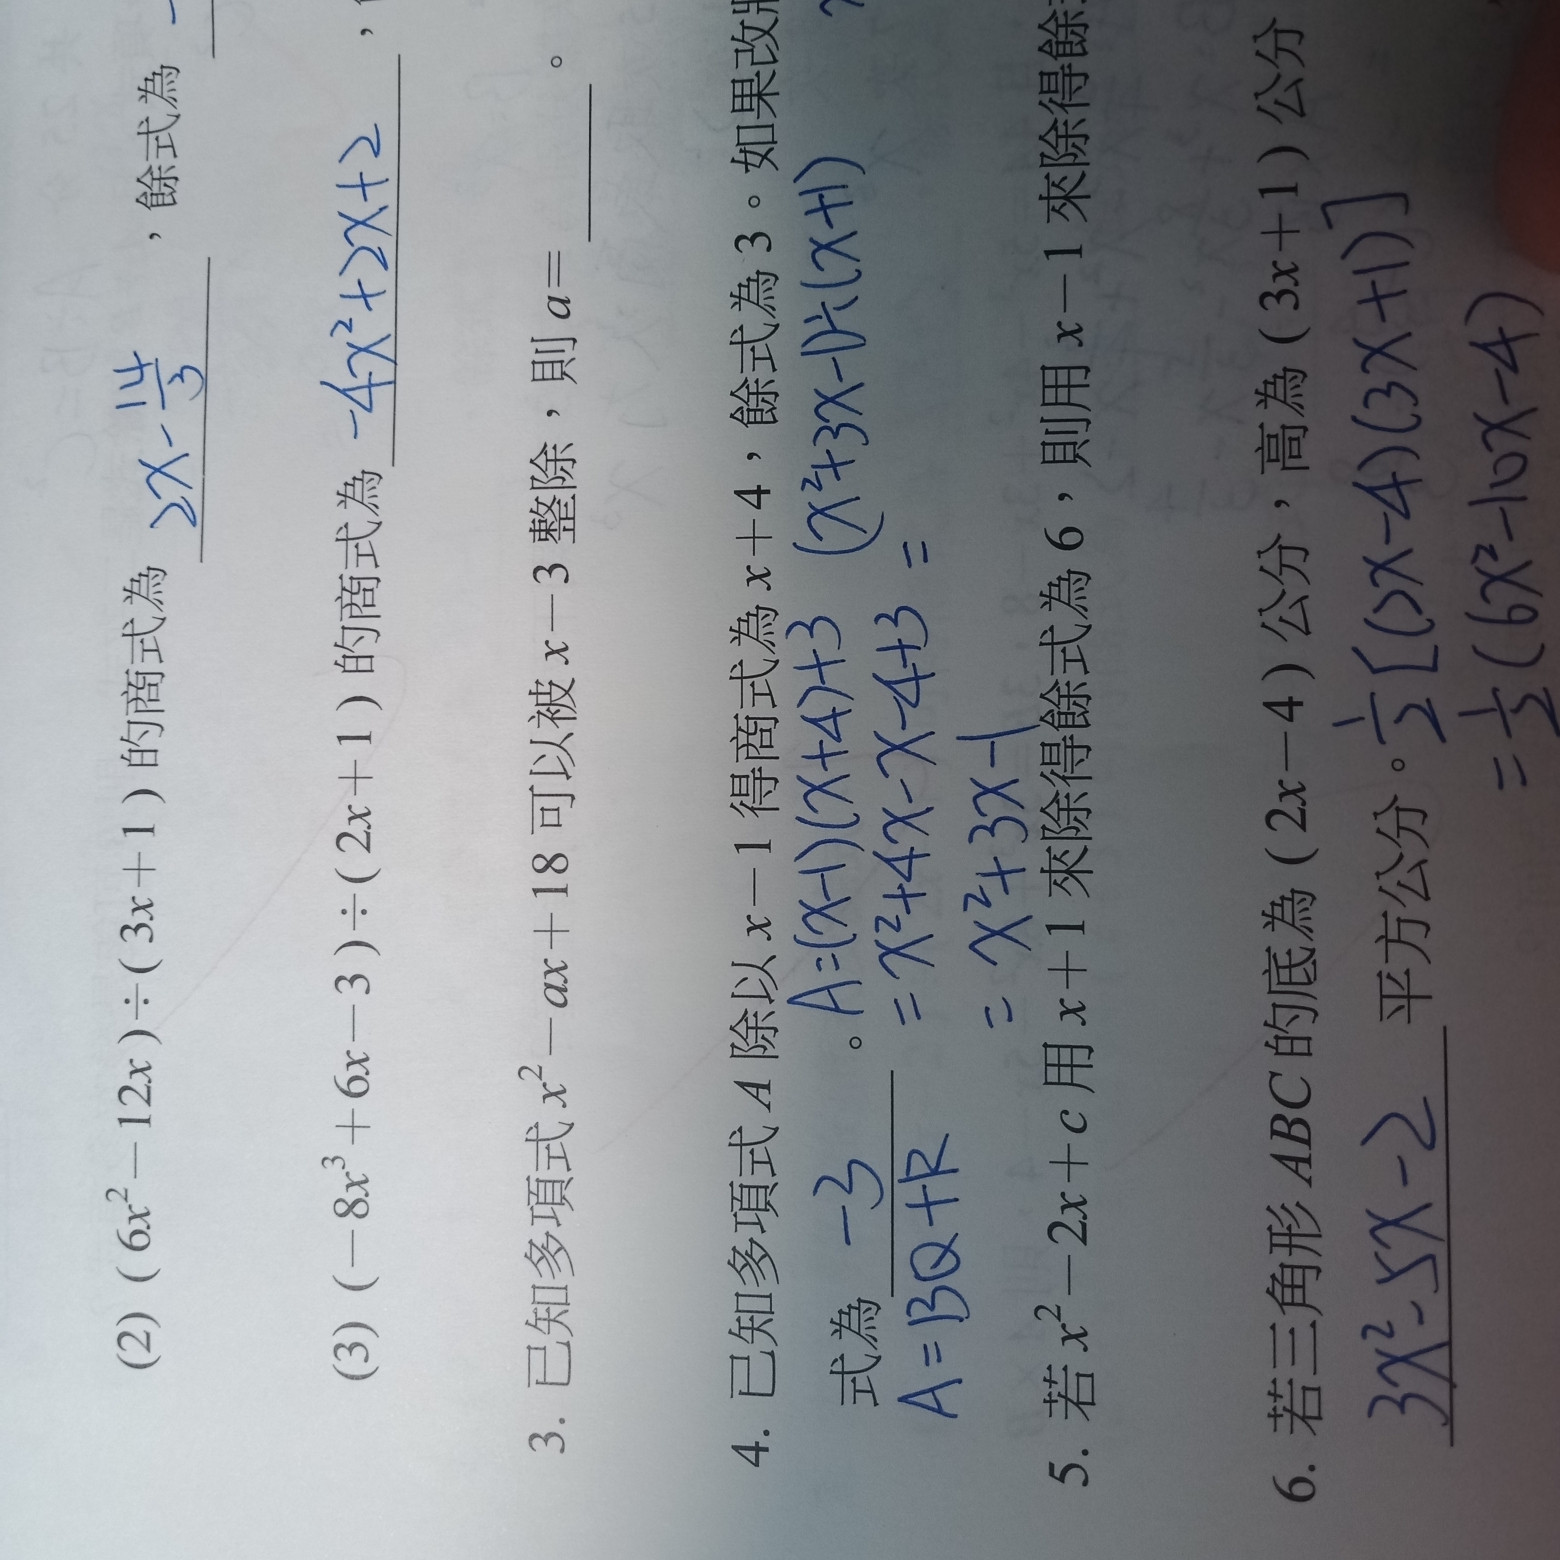 (2) (6x²−12x)÷(3x+1) 的商式為 2x−14/3 ,餘式為
(3) (−8x³+6x−3)÷(2x+1) 的商式為 −4x²+2x+2 ,
3. 已知多項式 x²−ax+18 可以被 x−3 整除,則 a=____。
4. 已知多項式 A 除以 x−1 得商式為 x+4,餘式為 3。如果改
式為 −3 。A=(x−1)(x+4)+3 (x²+3x−1)÷(x+1)
A=BQ+R =x²+4x−x−4+3 =
=x²+3x−1
5. 若 x²−2x+c 用 x+1 來除得餘式為 6,則用 x−1 來除得餘
6. 若三角形 ABC 的底為 (2x−4) 公分,高為 (3x+1) 公分
3x²−5x−2 平方公分。1/2[(2x−4)(3x+1)]
=1/2(6x²−10x−4)